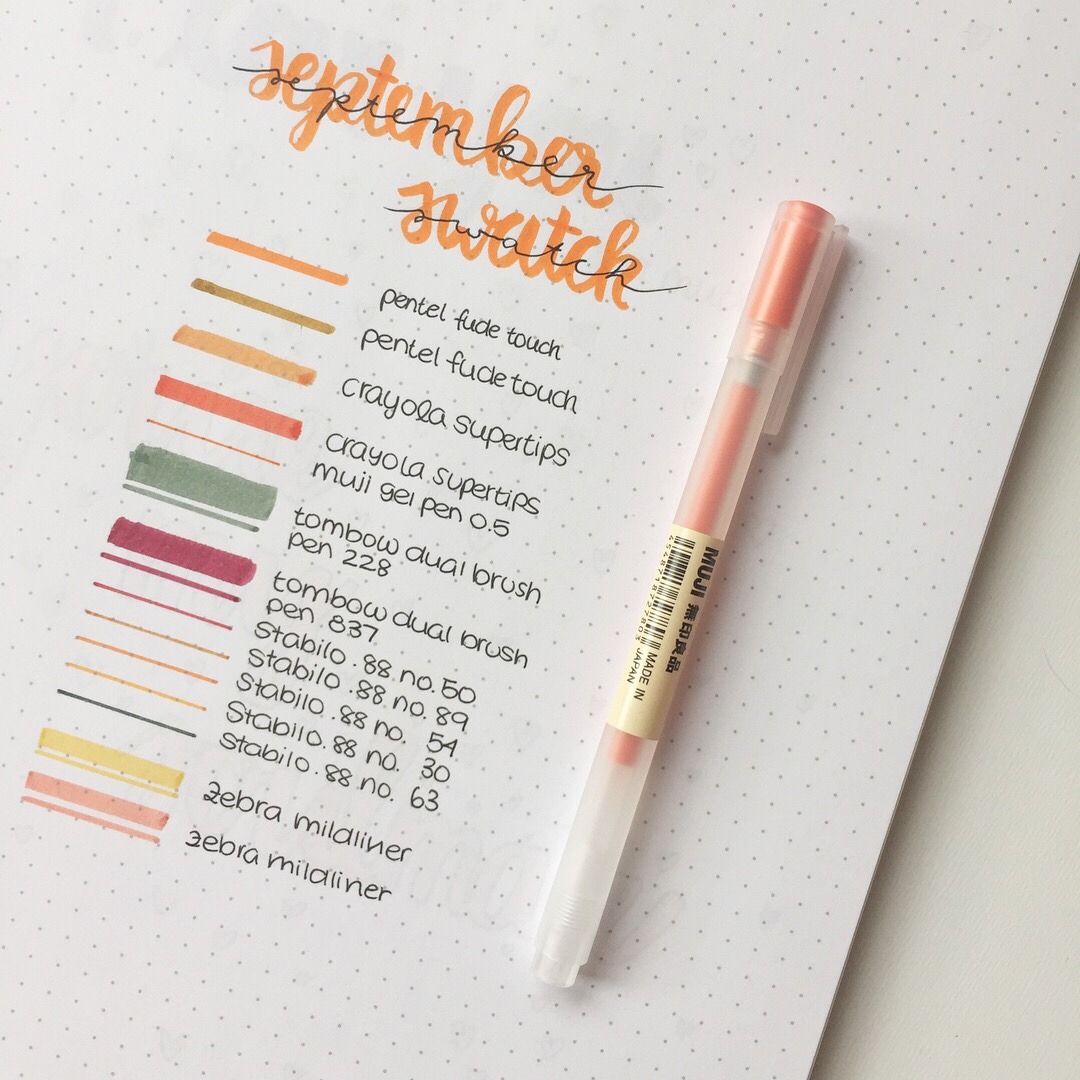 september
september
swatch
swatch
pentel fude touch
pentel fude touch
crayola supertips
crayola supertips
muji gel pen 0.5
tombow dual brush
pen 228
tombow dual brush
pen 837
Stabilo . 88 no. 50
Stabilo . 88 no. 89
Stabilo . 88 no. 54
Stabilo. 88 no. 30
Stabilo . 88 no. 63
zebra mildliner
zebra mildliner
MUJI 無印良品
MADE IN
JAPAN